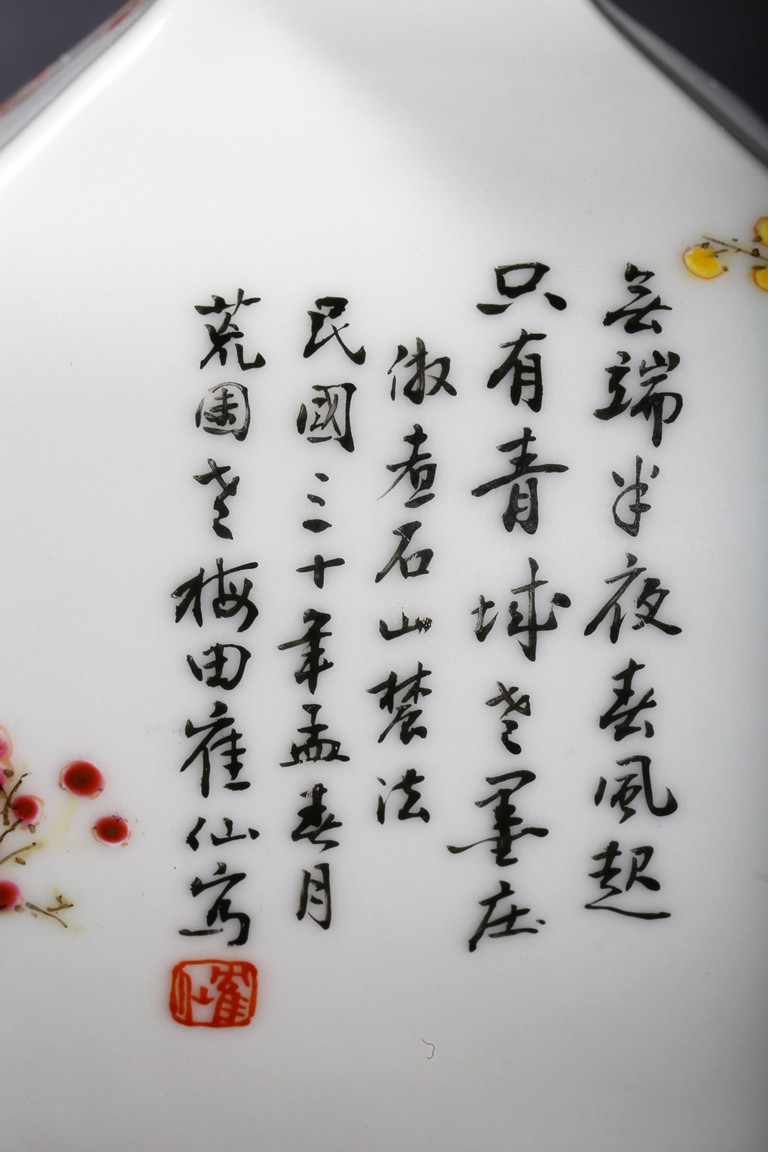 無端半夜春風起
只有青城老墨庄
倣煮石山農法
民國三十年孟春月
荒園老梅田隺仙寫
隺仙